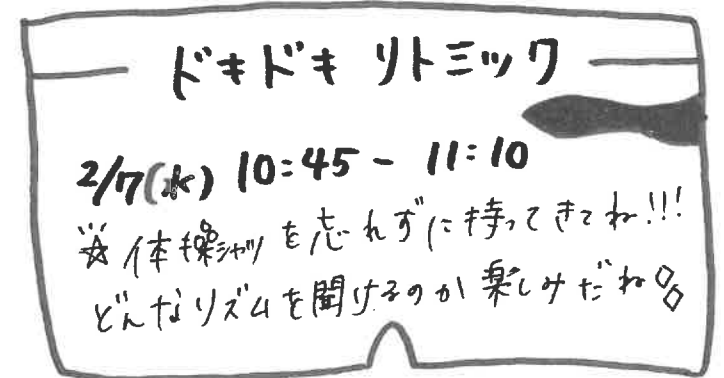 ドキドキ リトミック
2/7(水) 10:45 - 11:10
☆体操シャツを忘れずに持ってきてね!!!
どんなリズムを聞けるのか楽しみだね◇◇